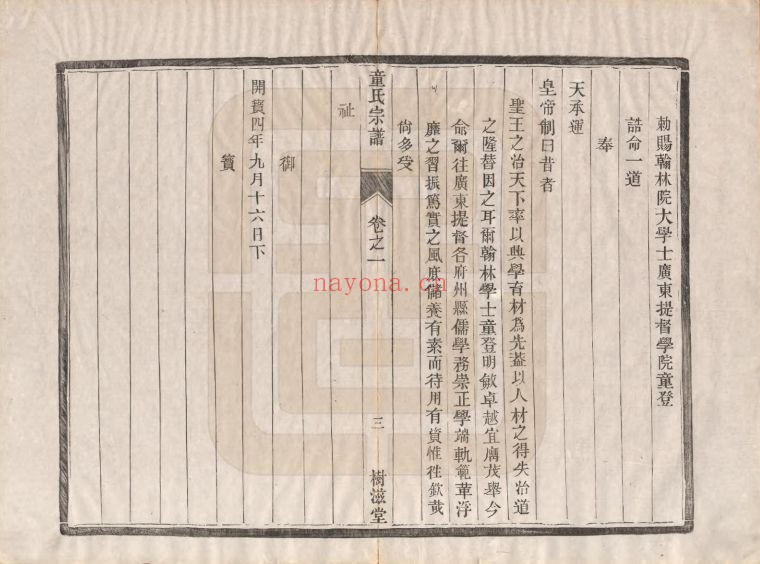 勅賜翰林院大學士廣東提督學院童登
誥命一道
奉
天承運
皇帝制曰昔者
聖王之治天下率以興學育材爲先蓋以人材之得失治道
之隆替因之耳爾翰林學士童登明敏卓越宜膺茂舉今
命爾往廣東提督各府州縣儒學務崇正學端軌範革浮
靡之習振篤實之風庶儲養有素而待用有資惟徃欽哉
尙多受
祉
童氏宗譜
卷之一
三
樹滋堂
御
開寶四年九月十六日下
寳
nayona.cn